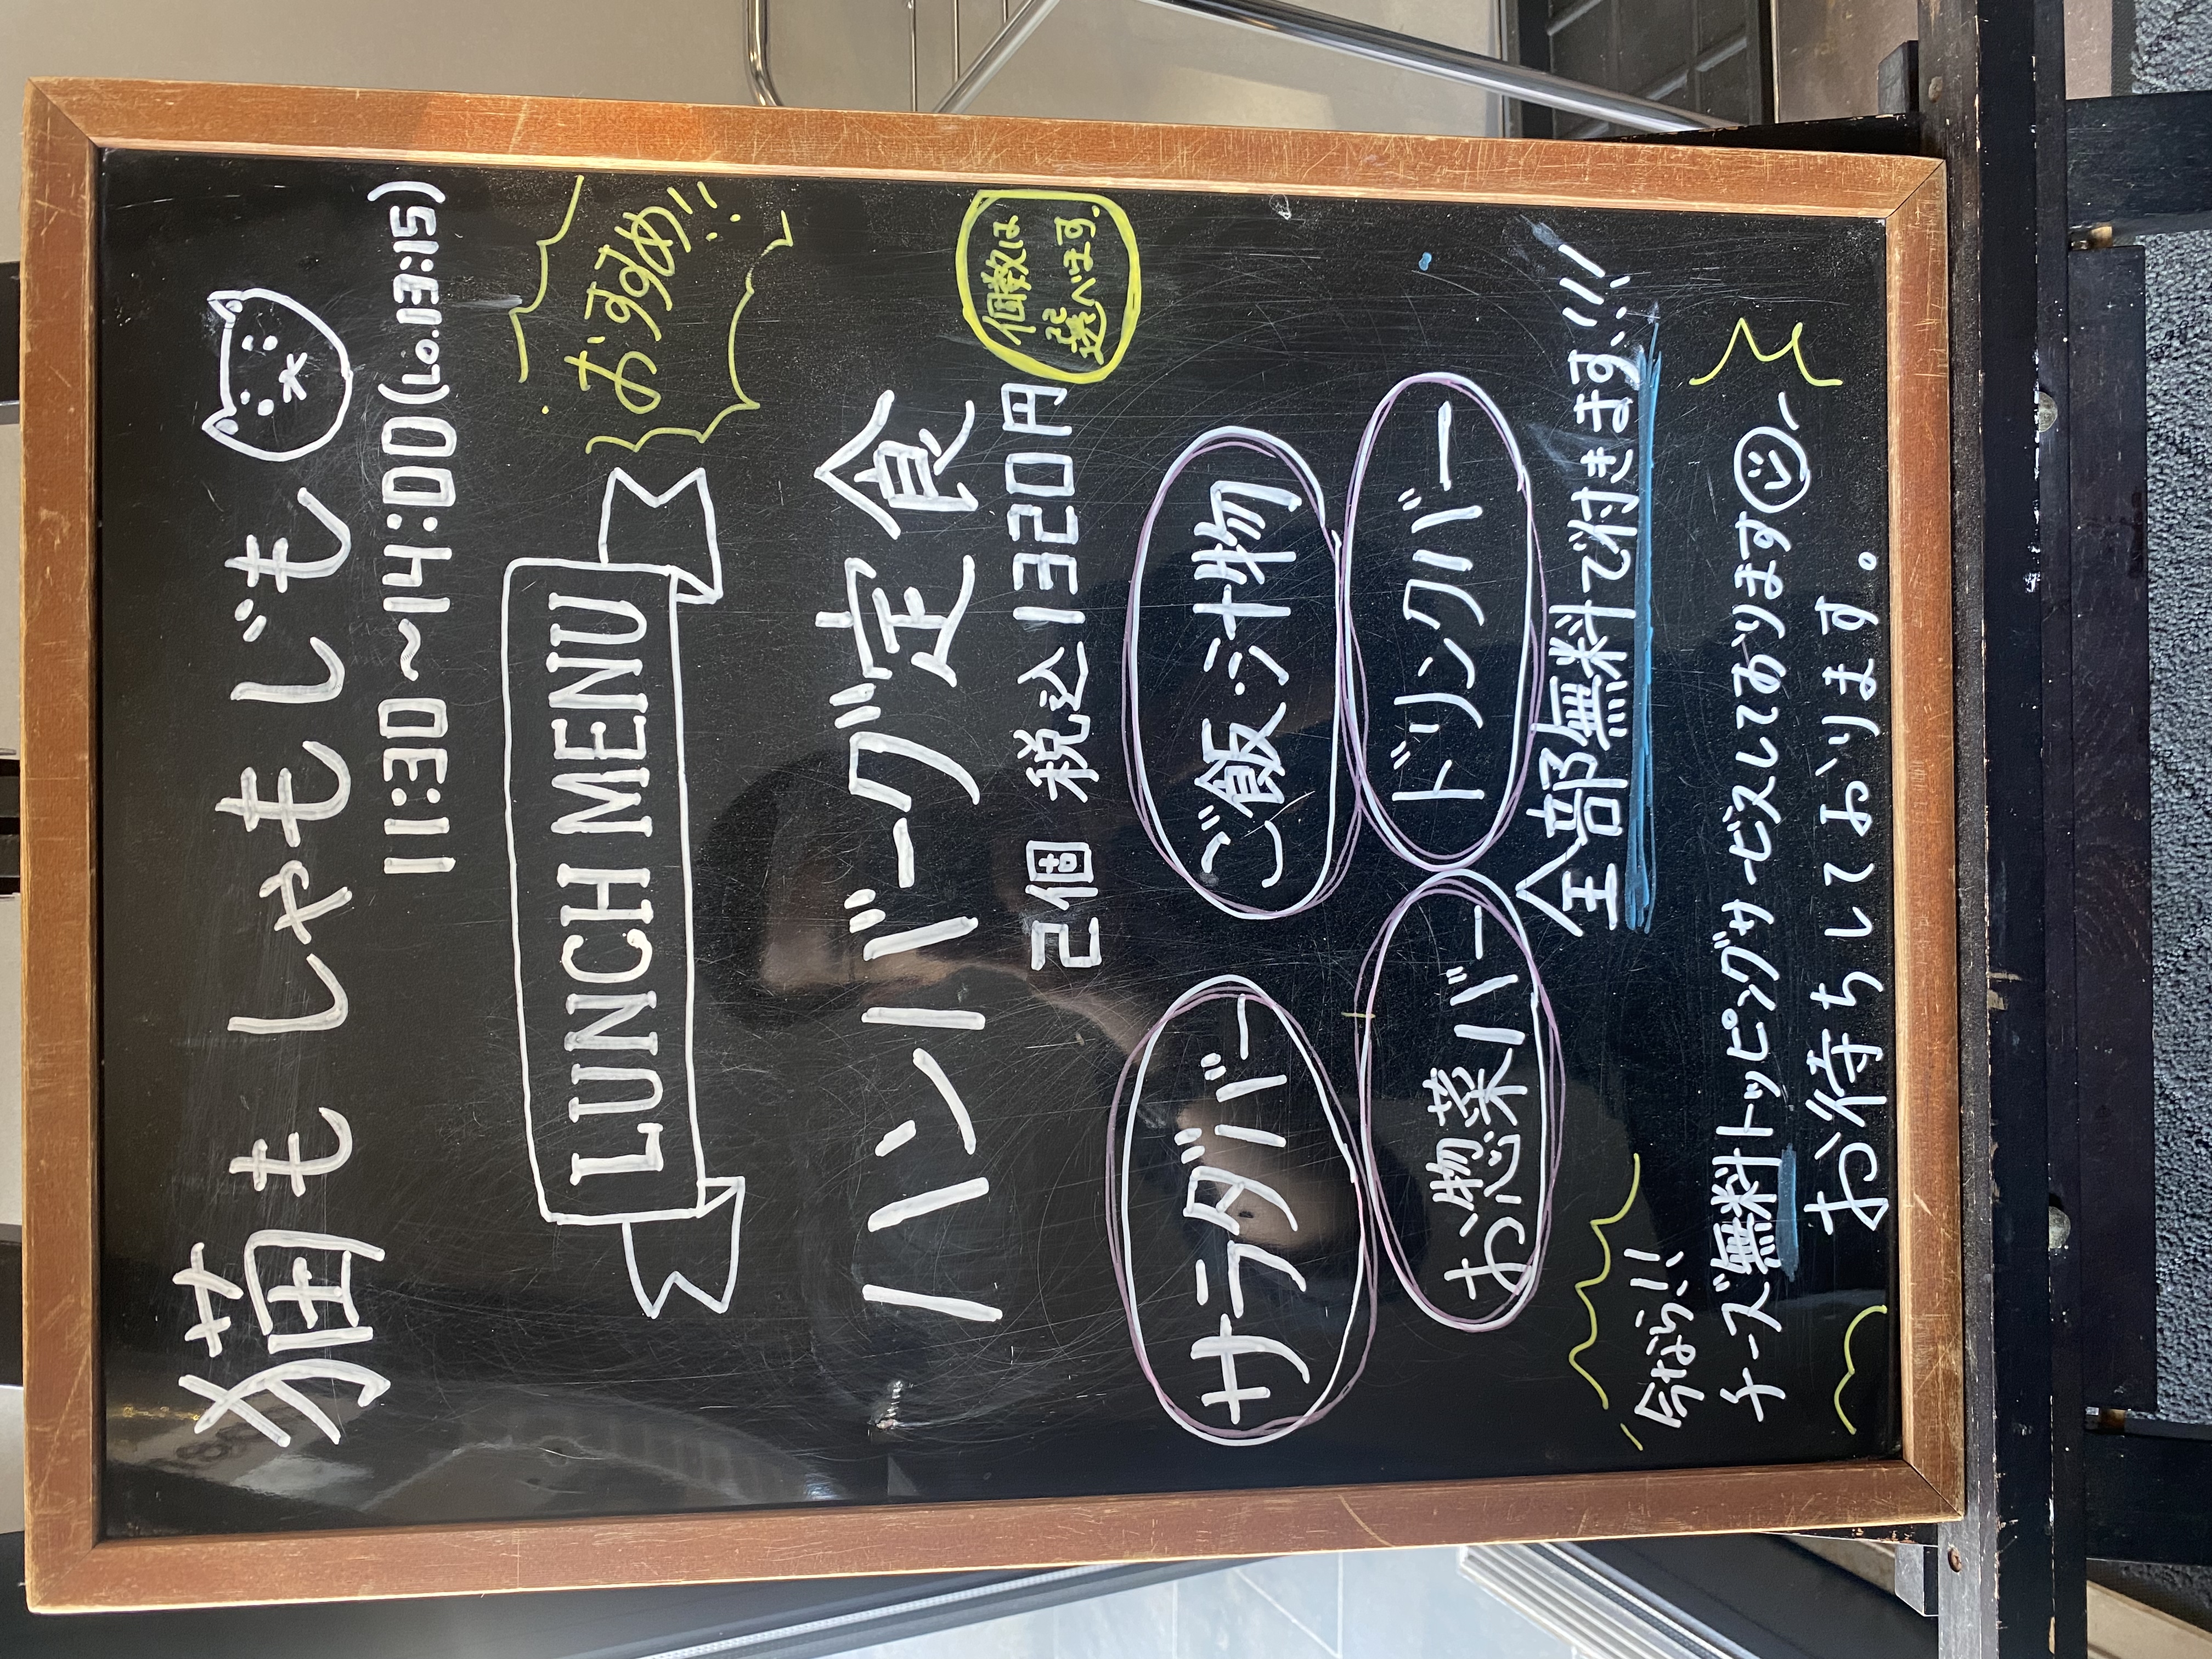 猫もしゃもじも
11:30～14:00(Lo.13:15)
LUNCH MENU
おすすめ!!
ハンバーグ定食
2個 税込1320円
個数は
選べます。
サラダバー
ご飯・汁物
お惣菜バー
ドリンクバー
全部無料で付きます!!!
今なら!!
チーズ無料トッピングサービスしております
お待ちしております。